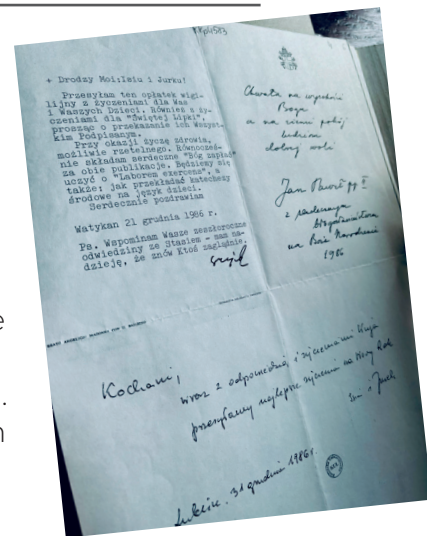 + Drodzy Moi:Isiu i Jurku!
Przesyłam ten opłatek wigi-
lijny z życzeniami dla Was
i Waszych Dzieci. Również z ży-
czeniami dla "Świętej Lipki",
prosząc o przekazanie ich Wszyst-
kim Podpisanym.
Przy okazji życzę zdrowia,
możliwie rzetelnego. Równocześ-
nie składam serdeczne "Bóg zapłać"
za obie publikacje. Będziemy się
uczyć o "Laborem exercens", a
także: jak przekładać katechezy
środowe na język dzieci.
Serdecznie pozdrawiam
Watykan 21 grudnia 1986 r.
Ps. Wspominam Wasze zeszłoroczne
odwiedziny ze Stasiem - mam na-
dzieję, że znów Ktoś zaglądnie.
Chwała na wysokości
Bogu
a na ziemi pokój
ludziom
dobrej woli
Jan Paweł pp II
z serdecznym
błogosławieństwem
na Boże Narodzenie
1986
Kochani,
wraz z odpowiedzią i życzeniami Wuja
przesyłamy najlepsze życzenia na Nowy Rok
i Jurek
Lublin, 31 grudnia 1986r.
e
.